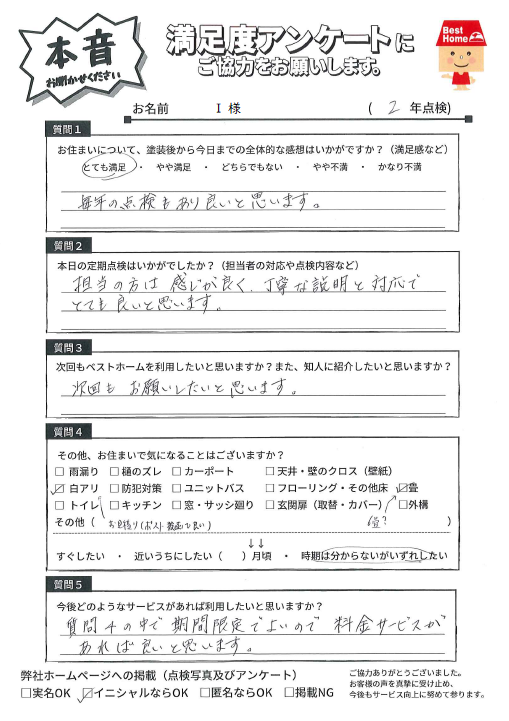 本音
お聞かせください
満足度アンケートに
ご協力をお願いします。
Best
Home
お名前 I 様 ( 2 年点検)
質問1
お住まいについて、塗装後から今日までの全体的な感想はいかがですか?(満足感など)
とても満足 ・ やや満足 ・ どちらでもない ・ やや不満 ・ かなり不満
毎年の点検もあり良いと思います。
質問2
本日の定期点検はいかがでしたか?(担当者の対応や点検内容など)
担当の方は感じが良く、丁寧な説明と対応で
とても良いと思います。
質問3
次回もベストホームを利用したいと思いますか?また、知人に紹介したいと思いますか?
次回もお願いしたいと思います。
質問4
その他、お住まいで気になることはございますか?
□ 雨漏り □ 樋のズレ □ カーポート □ 天井・壁のクロス(壁紙)
☑ 白アリ □ 防犯対策 □ ユニットバス □ フローリング・その他床 ☑畳
□ トイレ □ キッチン □ 窓・サッシ廻り □ 玄関扉(取替・カバー) □外構
その他( お見積り(ポスト投函で良い) 6畳? )
↓↓
すぐしたい ・ 近いうちにしたい( )月頃 ・ 時期は分からないがいずれしたい
質問5
今後どのようなサービスがあれば利用したいと思いますか?
質問4の中で期間限定でよいので 料金サービスが
あれば良いと思います。
弊社ホームページへの掲載(点検写真及びアンケート)
□実名OK ☑イニシャルならOK □匿名ならOK □掲載NG
ご協力ありがとうございました。
お客様の声を真摯に受け止め、
今後もサービス向上に努めて参ります。